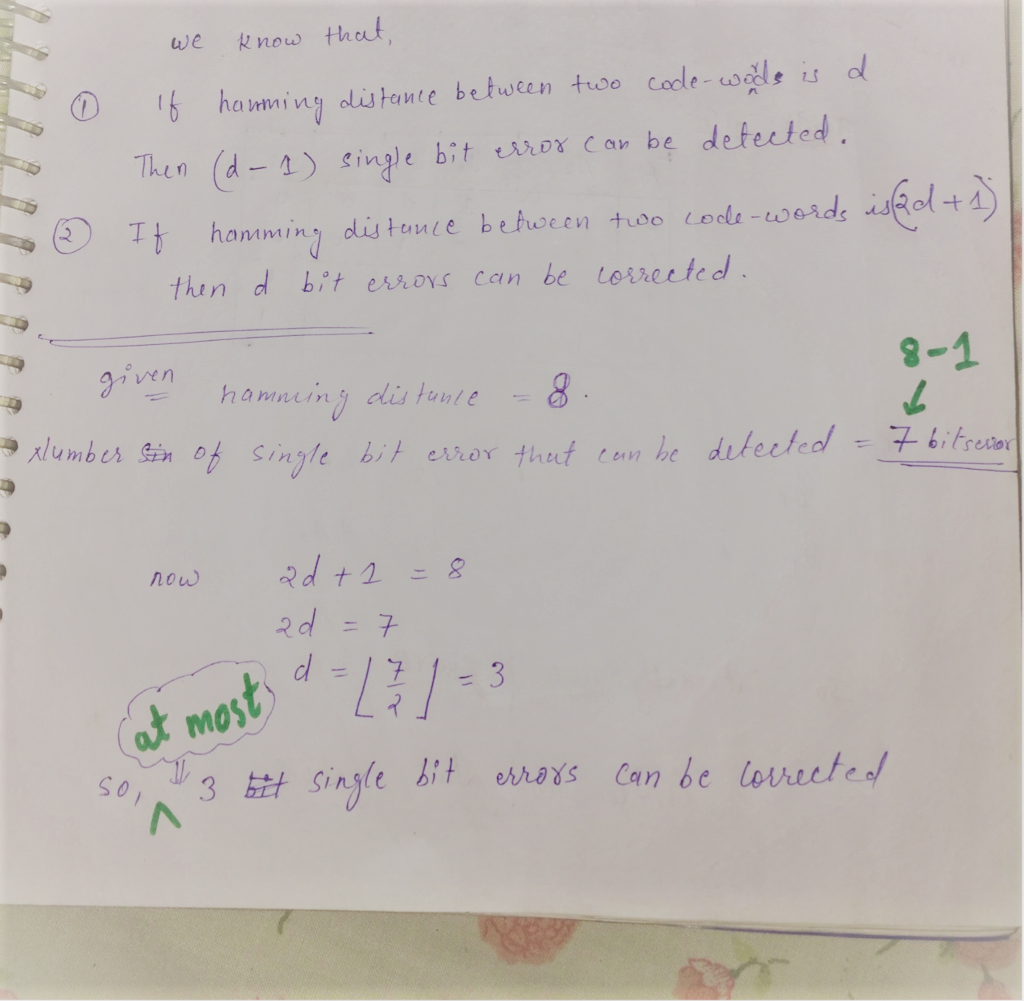 we know that,
① If hamming distance between two code-words is d
Then (d - 1) single bit error can be detected.
② If hamming distance between two code-words is (2d + 1)
then d bit errors can be corrected.
8-1
given hamming distance = 8.
Number of single bit error that can be detected = 7 bits error
now 2d + 1 = 8
2d = 7
d = ⌊7/2⌋ = 3
at most
so, 3 single bit errors can be corrected